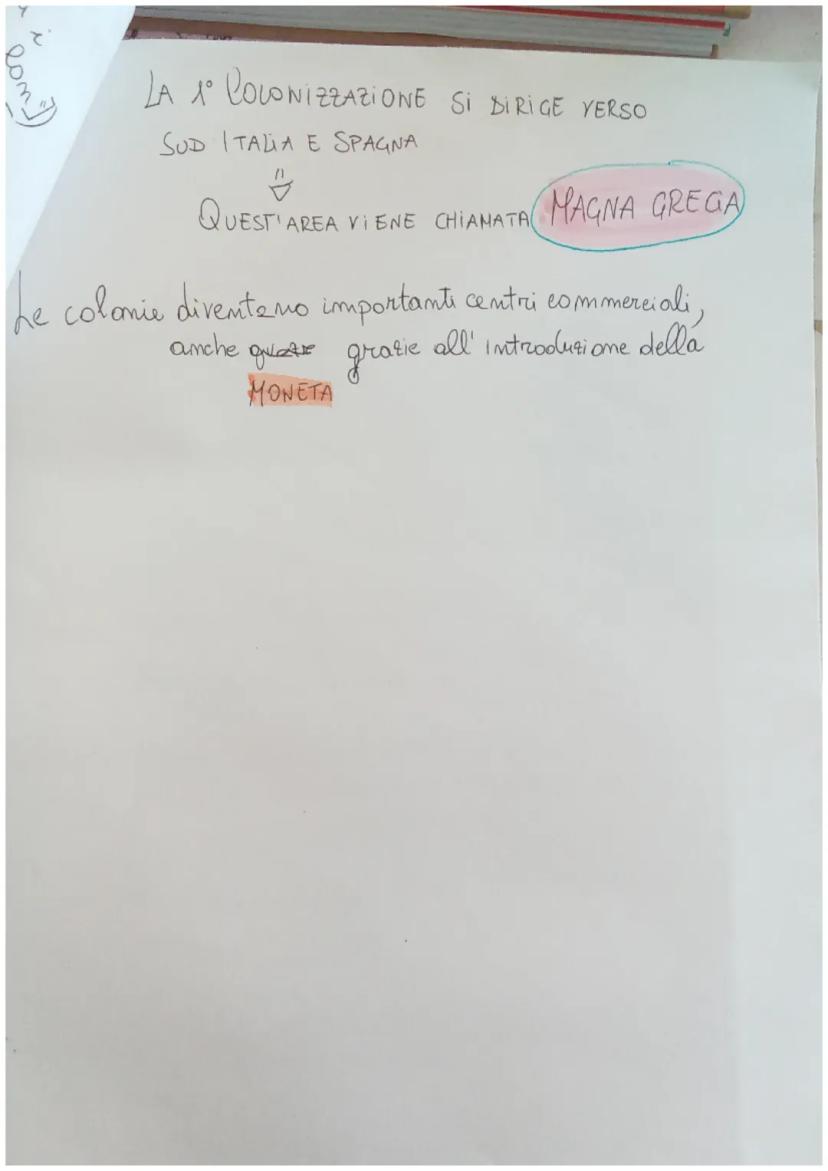 LA 1° COLONIZZAZIONE SI DIRIGE VERSO
SUD ITALIA E SPAGNA
QUEST'AREA VIENE CHIAMATA MAGNA GREGA
Le colonie diventano importanti centri commerciali,
anche grazie all'introduzione della
MONETA